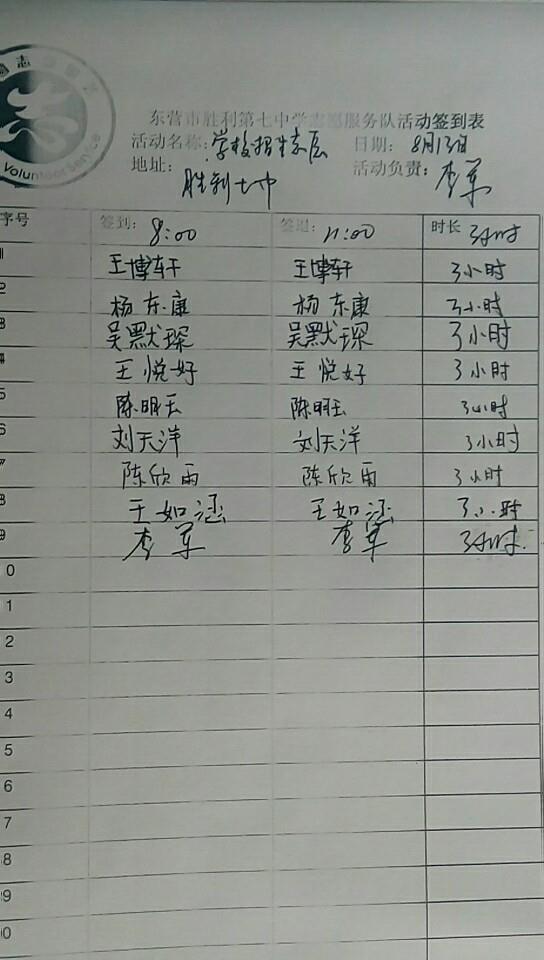 Volunteer Service
东营市胜利第七中学志愿服务队活动签到表
活动名称:学校招生志愿 日期: 8月13日
地址: 胜利七中 活动负责: 李军
序号 签到: 8:00 签退: 11:00 时长 3小时
1 王博轩 王博轩 3小时
2 杨东康 杨东康 3小时
3 吴默琛 吴默琛 3小时
4 王悦好 王悦好 3小时
5 陈明玉 陈明玉 3小时
6 刘天洋 刘天洋 3小时
7 陈欣雨 陈欣雨 3小时
8 王如涵 王如涵 3小时
9 李军 李军 3小时
0
1
2
3
4
5
6
7
8
9
0